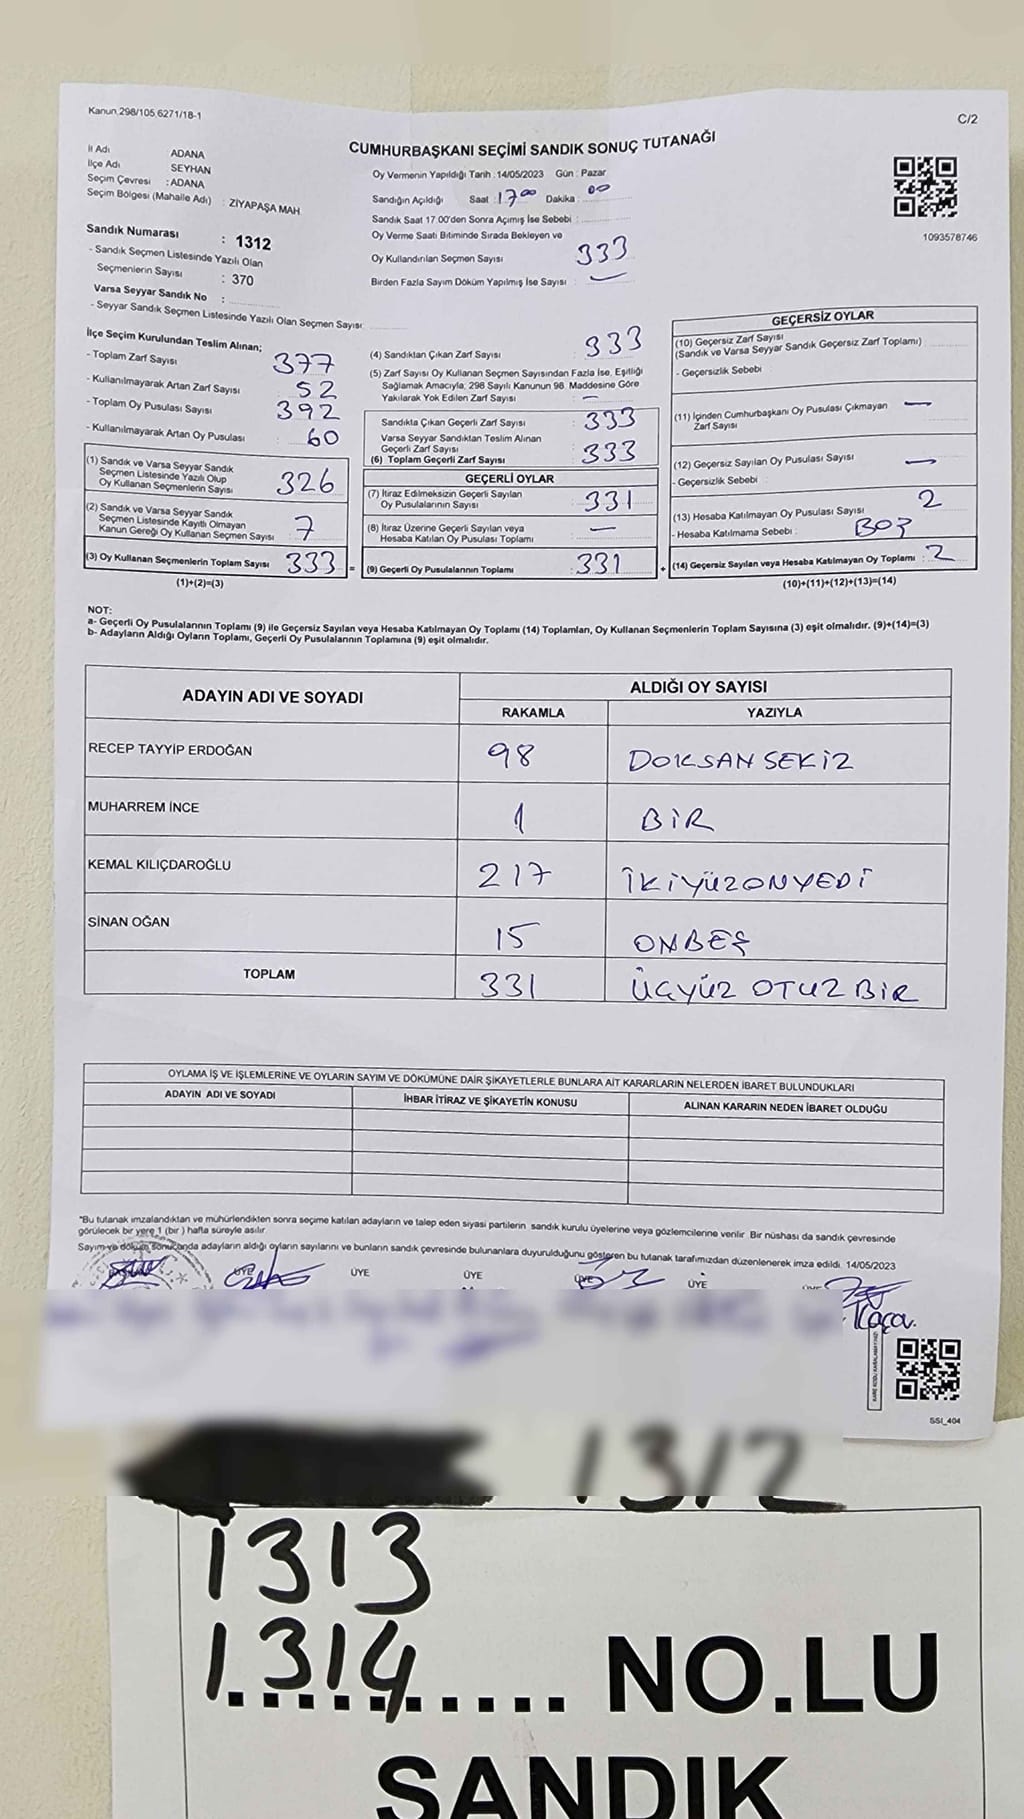 Kanun 298/105,6271/18-1
C/2
CUMHURBAŞKANI SEÇİMİ SANDIK SONUÇ TUTANAĞI
İl Adı ADANA
İlçe Adı SEYHAN
Seçim Çevresi : ADANA
Seçim Bölgesi (Mahalle Adı) : ZİYAPAŞA MAH.
Sandık Numarası : 1312
- Sandık Seçmen Listesinde Yazılı Olan
Seçmenlerin Sayısı : 370
Varsa Seyyar Sandık No :
- Seyyar Sandık Seçmen Listesinde Yazılı Olan Seçmen Sayısı:
Oy Vermenin Yapıldığı Tarih : 14/05/2023 Gün : Pazar
Sandığın Açıldığı Saat : 17 00 Dakika : 00
Sandık Saat 17.00'den Sonra Açımış İse Sebebi :
Oy Verme Saati Bitiminde Sırada Bekleyen ve
Oy Kullandırılan Seçmen Sayısı : 333
Birden Fazla Sayım Döküm Yapılmış İse Sayısı : —
1093578746
İlçe Seçim Kurulundan Teslim Alınan;
- Toplam Zarf Sayısı : 377
- Kullanılmayarak Artan Zarf Sayısı : 52
- Toplam Oy Pusulası Sayısı : 392
- Kullanılmayarak Artan Oy Pusulası : 60
(1) Sandık ve Varsa Seyyar Sandık
Seçmen Listesinde Yazılı Olup
Oy Kullanan Seçmenlerin Sayısı : 326
(2) Sandık ve Varsa Seyyar Sandık
Seçmen Listesinde Kayıtlı Olmayan
Kanun Gereği Oy Kullanan Seçmen Sayısı : 7
(3) Oy Kullanan Seçmenlerin Toplam Sayısı : 333 =
(1)+(2)=(3)
(4) Sandıktan Çıkan Zarf Sayısı : 333
(5) Zarf Sayısı Oy Kullanan Seçmen Sayısından Fazla İse, Eşitliği
Sağlamak Amacıyla, 298 Sayılı Kanunun 98. Maddesine Göre
Yakılarak Yok Edilen Zarf Sayısı : —
Sandıkta Çıkan Geçerli Zarf Sayısı : 333
Varsa Seyyar Sandıktan Teslim Alınan
Geçerli Zarf Sayısı
(6) Toplam Geçerli Zarf Sayısı : 333
GEÇERLİ OYLAR
(7) İtiraz Edilmeksizin Geçerli Sayılan
Oy Pusulalarının Sayısı : 331
(8) İtiraz Üzerine Geçerli Sayılan veya
Hesaba Katılan Oy Pusulası Toplamı : —
(9) Geçerli Oy Pusulalarının Toplamı : 331 +
GEÇERSİZ OYLAR
(10) Geçersiz Zarf Sayısı
(Sandık ve Varsa Seyyar Sandık Geçersiz Zarf Toplamı) :
- Geçersizlik Sebebi :
(11) İçinden Cumhurbaşkanı Oy Pusulası Çıkmayan
Zarf Sayısı : —
(12) Geçersiz Sayılan Oy Pusulası Sayısı : —
- Geçersizlik Sebebi :
(13) Hesaba Katılmayan Oy Pusulası Sayısı : 2
- Hesaba Katılmama Sebebi :
(14) Geçersiz Sayılan veya Hesaba Katılmayan Oy Toplamı : 2
(10)+(11)+(12)+(13)=(14)
NOT:
a- Geçerli Oy Pusulalarının Toplamı (9) ile Geçersiz Sayılan veya Hesaba Katılmayan Oy Toplamı (14) Toplamları, Oy Kullanan Seçmenlerin Toplam Sayısına (3) eşit olmalıdır. (9)+(14)=(3)
b- Adayların Aldığı Oyların Toplamı, Geçerli Oy Pusulalarının Toplamına (9) eşit olmalıdır.
ADAYIN ADI VE SOYADI ALDIĞI OY SAYISI
RAKAMLA YAZIYLA
RECEP TAYYİP ERDOĞAN 98 DOKSAN SEKİZ
MUHARREM İNCE 1 BİR
KEMAL KILIÇDAROĞLU 217 İKİYÜZONYEDİ
SİNAN OĞAN 15 ONBEŞ
TOPLAM 331 ÜÇYÜZ OTUZ BİR
OYLAMA İŞ VE İŞLEMLERİNE VE OYLARIN SAYIM VE DÖKÜMÜNE DAİR ŞİKAYETLERLE BUNLARA AİT KARARLARIN NELERDEN İBARET BULUNDUKLARI
ADAYIN ADI VE SOYADI İHBAR İTİRAZ VE ŞİKAYETİN KONUSU ALINAN KARARIN NEDEN İBARET OLDUĞU
"Bu tutanak imzalandıktan ve mühürlendikten sonra seçime katılan adayların ve talep eden siyasi partilerin sandık kurulu üyelerine veya gözlemcilerine verilir Bir nüshası da sandık çevresinde
görülecek bir yere 1 (bir) hafta süreyle asılır.
Sayım ve döküm sonucunda adayların aldığı oyların sayılarını ve bunların sandık çevresinde bulunanlara duyurulduğunu gösteren bu tutanak tarafımızdan düzenlenerek imza edildi. 14/05/2023
ÜYE ÜYE ÜYE ÜYE ÜYE
SSI_404
1312
1313
1314 NO.LU
SANDIK